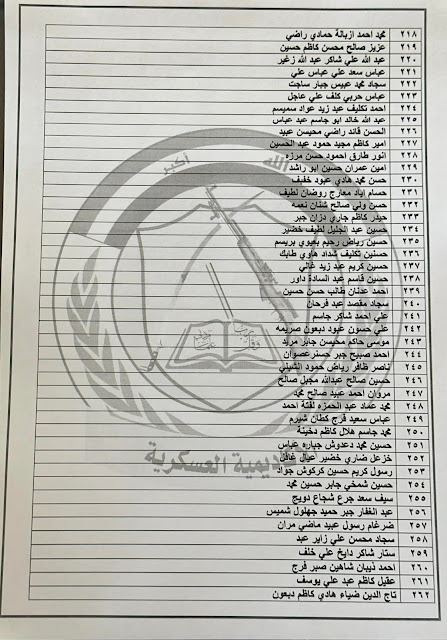 ٢١٨ محمد احمد ازبالة حمادي راضي
٢١٩ عزيز صالح محسن كاظم حسين
٢٢٠ عبد الله علي شاكر عبد الله زغير
٢٢١ عباس سعد علي عباس علي
٢٢٢ سجاد محمد عبيس جبار ساجت
٢٢٣ عباس حربي كلف علي عاجل
٢٢٤ احمد تكليف عبد زيد عواد سميسم
٢٢٥ عبد الله خالد ابو جاسم عبد عباس
٢٢٦ الحسن قائد راضي محيسن عبيد
٢٢٧ امير كاظم مجيد حمود عبد الحسين
٢٢٨ انور طارق احمود حسن مرزه
٢٢٩ امين عمران حسين ابو راشد
٢٣٠ حسن محمد هادي عبود خفيف
٢٣١ حسام اياد معارج روضان لطيف
٢٣٢ حسن ولي صالح شنان نعمه
٢٣٣ حيدر كاظم جاري دزان جبر
٢٣٤ حسين عبد الجليل لطيف خضير
٢٣٥ حسين رياض رحيم بعيوي بريسم
٢٣٦ حسنين تكليف شداد هاوي طابك
٢٣٧ حسين كريم عبد زيد غالي
٢٣٨ حسين قاسم عبد السادة داور
٢٣٩ احمد عدنان طالب حسن حسين
٢٤٠ سجاد مقصد عبد فرحان
٢٤١ علي احمد شاكر جاسم
٢٤٢ علي حسون عبود دبعون صريمه
٢٤٣ موسى حاكم محيسن جابر مريد
٢٤٤ احمد صبيح جبر حسن عصوان
٢٤٥ ناصر ظافر رياض حمود الشبلي
٢٤٦ حسين صالح عبدالله مجبل صالح
٢٤٧ مروان احمد عبيد صالح محمد
٢٤٨ محمد عماد عبد الحمزه لفتة احمد
٢٤٩ عباس سعيد فرج كطان شبرم
٢٥٠ محمد جاسم هلال كاظم دخينة
٢٥١ حسين محمد دعدوش جباره عباس
٢٥٢ خزعل ضاري خضير عيال غافل
٢٥٣ رسول كريم حسين كركوش جواد
٢٥٤ حسين شمخي جابر حسين محمد
٢٥٥ سيف سعد جرع شجاع دويج
٢٥٦ عبد الغفار جبر حميد جهلول شميس
٢٥٧ ضرغام رسول عبيد ماضي مران
٢٥٨ سجاد محسن علي زاير عبد
٢٥٩ ستار شاكر دايخ علي خلف
٢٦٠ احمد ذيبان شاهين صبر فرج
٢٦١ عقيل كاظم عبد علي يوسف
٢٦٢ تاج الدين ضياء هادي كاظم دبعون
الله
اكبر
العسكرية